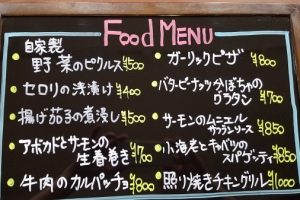 Food MENU
自家製
野菜のピクルス ¥500
・セロリの浅漬け ¥400
・揚げ茄子の煮浸し ¥500
・アボカドとサーモンの
生春巻き ¥700
・牛肉のカルパッチョ ¥800
・ガーリックピザ ¥800
・バターピーナッツかぼちゃの
グラタン ¥700
・サーモンのムニエル
サラダソース ¥850
・小海老とキャベツの
スパゲッティ ¥850
・照り焼きチキングリル ¥1000